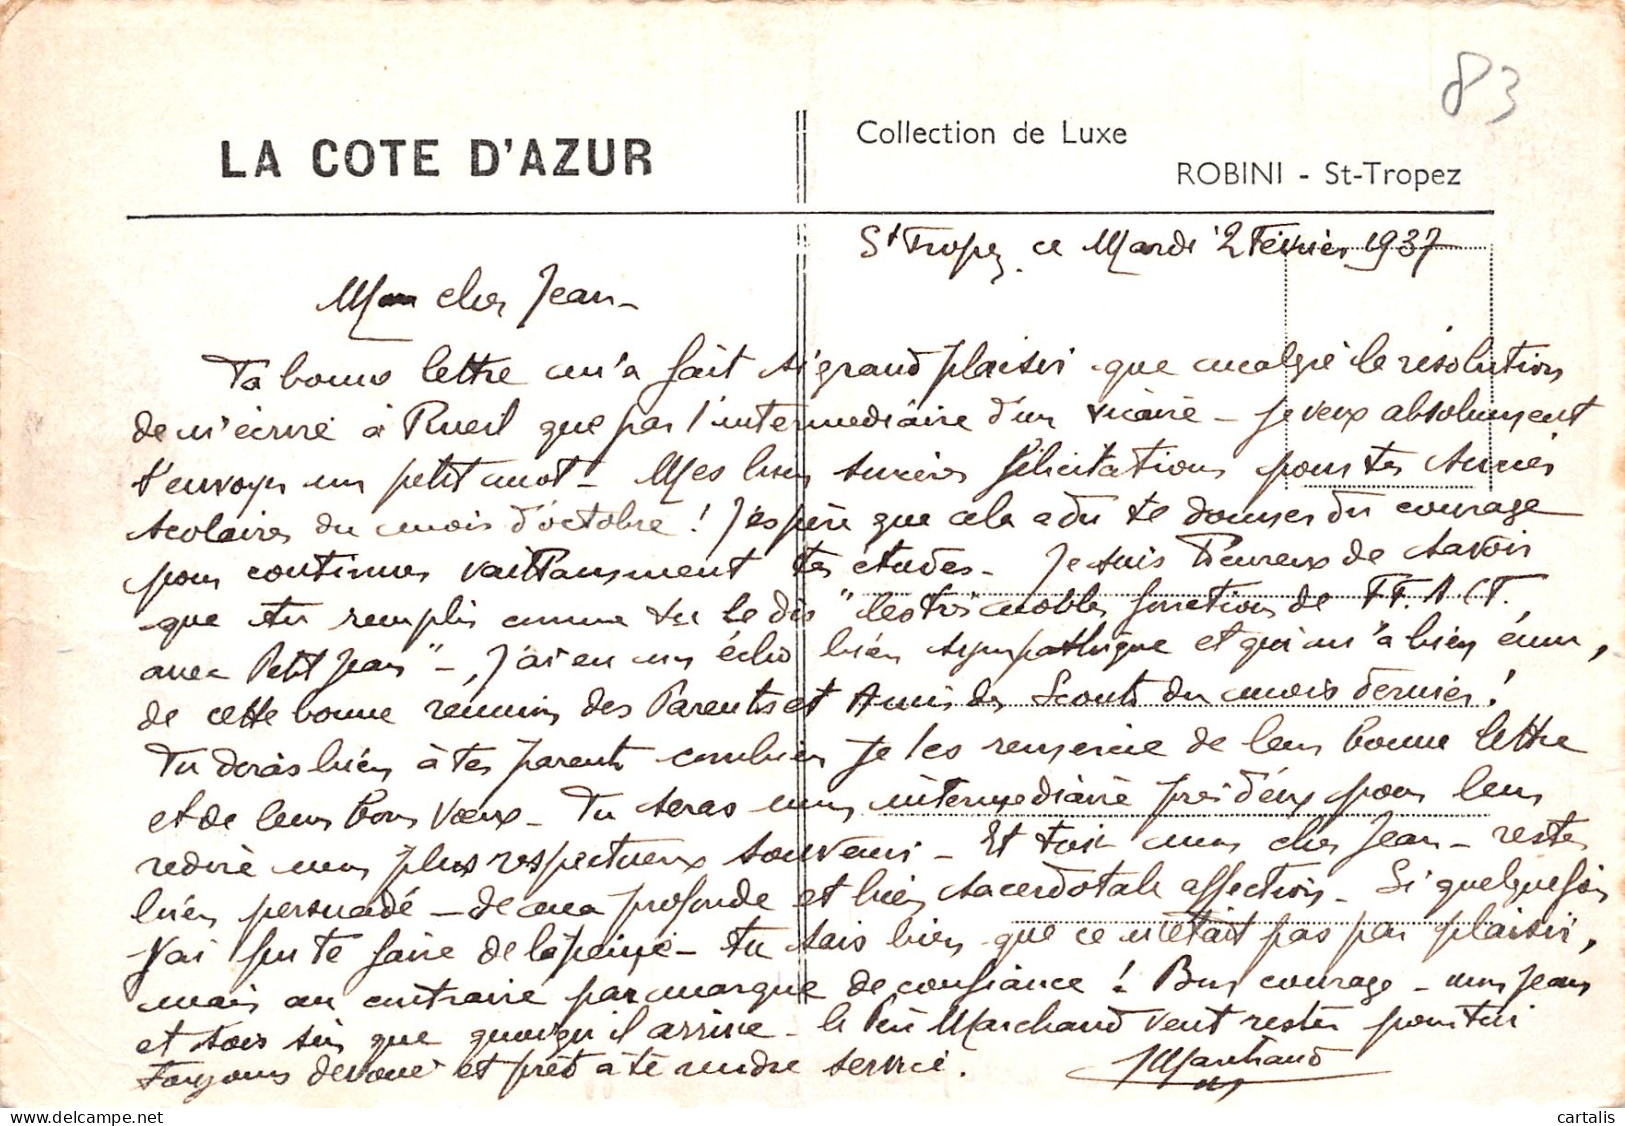 83
LA COTE D'AZUR
Collection de Luxe
ROBINI - St-Tropez
St Tropez, ce Mardi 2 Février 1937
Mon cher Jean -
Ta bonne lettre m'a fait si grand plaisir que malgré la résolution
de m'écrire à Rueil que par l'intermédiaire d'un vicaire - je veux absolument
t'envoyer un petit mot - Mes bien sincères félicitations pour tes succès
scolaires du mois d'octobre ! J'espère que cela a dû te donner du courage
pour continuer vaillamment tes études - Je suis heureux de savoir
que tu remplis comme tu le dis "les très nobles fonctions de
avec Petit Jean" -, J'ai eu un écho bien sympathique et qui m'a bien ému,
de cette bonne réunion des Parents et Amis des Scouts du mois dernier !
Tu diras bien à tes parents combien je les remercie de leur bonne lettre
et de leurs bons vœux - Tu seras mon intermédiaire précieux pour leur
redire mon plus respectueux souvenir - Et toi mon cher Jean - reste
bien persuadé - de ma profonde et bien sacerdotale affection - Si quelquefois
j'ai pu te faire de la peine - tu sais bien que ce n'était pas par plaisir,
mais au contraire par marque de confiance ! Bon courage - mon Jean
et sois sûr que quoiqu'il arrive - le Père Marchand veut rester pour toi
toujours dévoué et prêt à te rendre service.
Marchand
cartalis